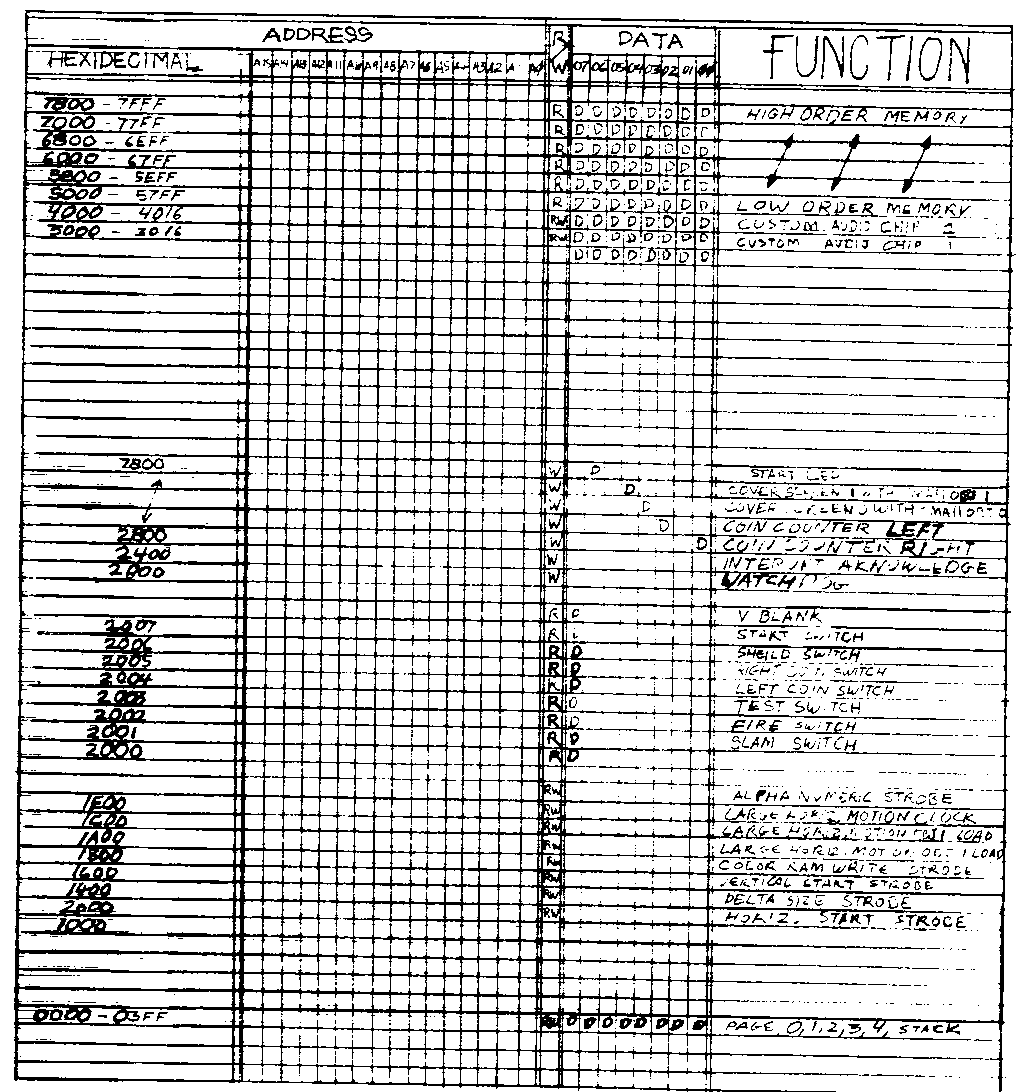 ADDRESS R/W DATA FUNCTION
HEXIDECIMAL A15 A14 A13 A12 A11 A10 A9 A8 A7 A6 A5 A4 A3 A2 A1 A0 D7 D6 D5 D4 D3 D2 D1 D0
7800 - 7FFF R D D D D D D D D HIGH ORDER MEMORY
7000 - 77FF R D D D D D D D
6800 - 6EFF R D D D D D D D D
6000 - 67FF R D D D D D D D
5800 - 5EFF R D D D D D D D
5000 - 57FF R D D D D D D D D LOW ORDER MEMORY
4000 - 4016 RW D D D D D D D D CUSTOM AUDIO CHIP 2
3000 - 3016 RW D D D D D D D D CUSTOM AUDIO CHIP 1
D D D D D D D D
2800 W D START LED
W D COVER SCREEN WITH
W D COVER SCREEN WITH
W D COIN COUNTER LEFT
2800 W D COIN COUNTER RIGHT
2400 W INTERUPT AKNOWLEDGE
2000 W WATCH DOG
2007 R D V BLANK
2006 R START SWITCH
2005 R D SHEILD SWITCH
2004 R D RIGHT COIN SWITCH
2003 R D LEFT COIN SWITCH
2002 R D TEST SWITCH
2001 R D FIRE SWITCH
2000 R D SLAM SWITCH
1E00 RW ALPHA NUMERIC STROBE
1C00 RW LARGE HORIZ MOTION CLOCK
1A00 RW LARGE HORIZ MOTION LOAD
1800 RW LARGE HORIZ. MOT OBJ 1 LOAD
1600 RW COLOR RAM WRITE STROBE
1400 RW VERTICAL START STROBE
2000 RW DELTA SIZE STROBE
1000 RW HORIZ. START STROBE
0000 - 03FF RW D D D D D D D D PAGE 0,1,2,3,4, STACK